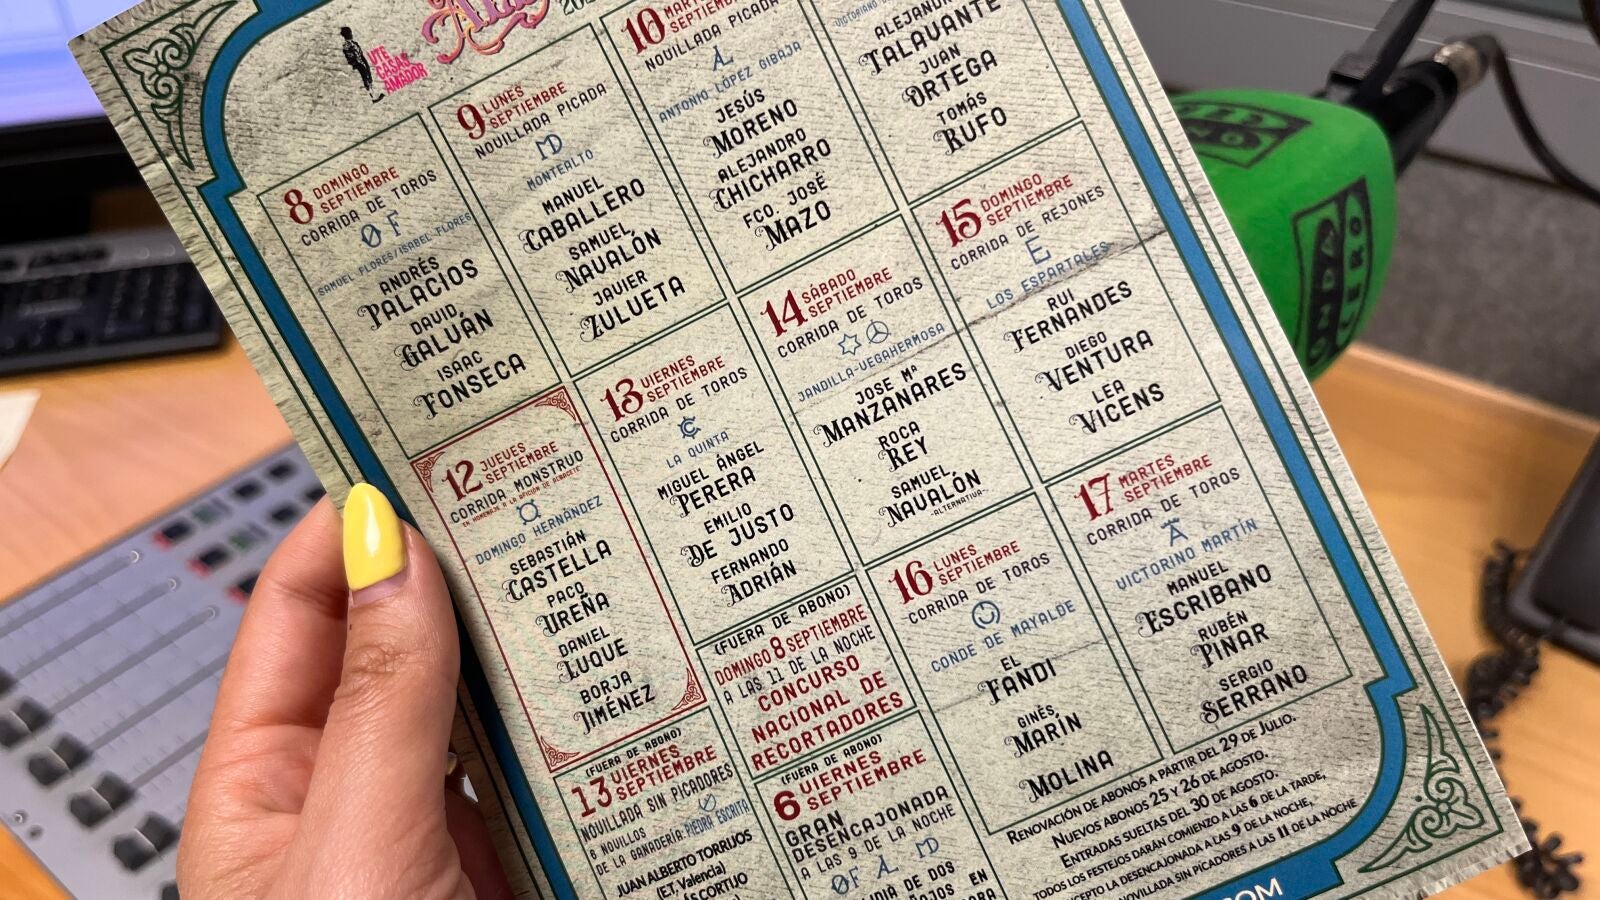 UTE
CASAS
AMADOR
8 DOMINGO
SEPTIEMBRE
CORRIDA DE TOROS
SAMUEL FLORES/ISABEL FLORES
ANDRÉS
PALACIOS
DAVID
GALVÁN
ISAAC
FONSECA
9 LUNES
SEPTIEMBRE
NOVILLADA PICADA
MONTEALTO
MANUEL
CABALLERO
SAMUEL
NAVALÓN
JAVIER
ZULUETA
10 MARTES
SEPTIEMBRE
NOVILLADA PICADA
ANTONIO LÓPEZ GIBAJA
JESÚS
MORENO
ALEJANDRO
CHICHARRO
FCO. JOSÉ
MAZO
ALEJANDRO
TALAVANTE
JUAN
ORTEGA
TOMÁS
RUFO
12 JUEVES
SEPTIEMBRE
CORRIDA MONSTRUO
EN HOMENAJE A LA AFICIÓN DE ALBACETE
DOMINGO HERNÁNDEZ
SEBASTIÁN
CASTELLA
PACO
UREÑA
DANIEL
LUQUE
BORJA
JIMÉNEZ
13 VIERNES
SEPTIEMBRE
CORRIDA DE TOROS
LA QUINTA
MIGUEL ÁNGEL
PERERA
EMILIO
DE JUSTO
FERNANDO
ADRIÁN
14 SÁBADO
SEPTIEMBRE
CORRIDA DE TOROS
JANDILLA-VEGAHERMOSA
JOSE Mª
MANZANARES
ROCA
REY
SAMUEL
NAVALÓN
-ALTERNATIVA-
15 DOMINGO
SEPTIEMBRE
CORRIDA DE REJONES
LOS ESPARTALES
RUI
FERNANDES
DIEGO
VENTURA
LEA
VICENS
16 LUNES
SEPTIEMBRE
CORRIDA DE TOROS
CONDE DE MAYALDE
EL
FANDI
GINÉS
MARÍN
MOLINA
17 MARTES
SEPTIEMBRE
CORRIDA DE TOROS
VICTORINO MARTÍN
MANUEL
ESCRIBANO
RUBÉN
PINAR
SERGIO
SERRANO
(FUERA DE ABONO)
DOMINGO 8 SEPTIEMBRE
A LAS 11 DE LA NOCHE
CONCURSO
NACIONAL DE
RECORTADORES
(FUERA DE ABONO)
13 VIERNES
SEPTIEMBRE
NOVILLADA SIN PICADORES
6 NOVILLOS
DE LA GANADERÍA: PIEDRA ESCRITA
JUAN ALBERTO TORRIJOS
(E.T. Valencia)
CORTIJO
(FUERA DE ABONO)
6 VIERNES
SEPTIEMBRE
GRAN
DESENCAJONADA
A LAS 9 DE LA NOCHE
LIDIA DE DOS
EN
RENOVACIÓN DE ABONOS A PARTIR DEL 29 DE JULIO.
NUEVOS ABONOS 25 Y 26 DE AGOSTO.
ENTRADAS SUELTAS DEL 30 DE AGOSTO.
TODOS LOS FESTEJOS DARÁN COMIENZO A LAS 6 DE LA TARDE,
EXCEPTO LA DESENCAJONADA A LAS 9 DE LA NOCHE,
NOVILLADA SIN PICADORES A LAS 11 DE LA NOCHE
.COM
ONDA
CERO